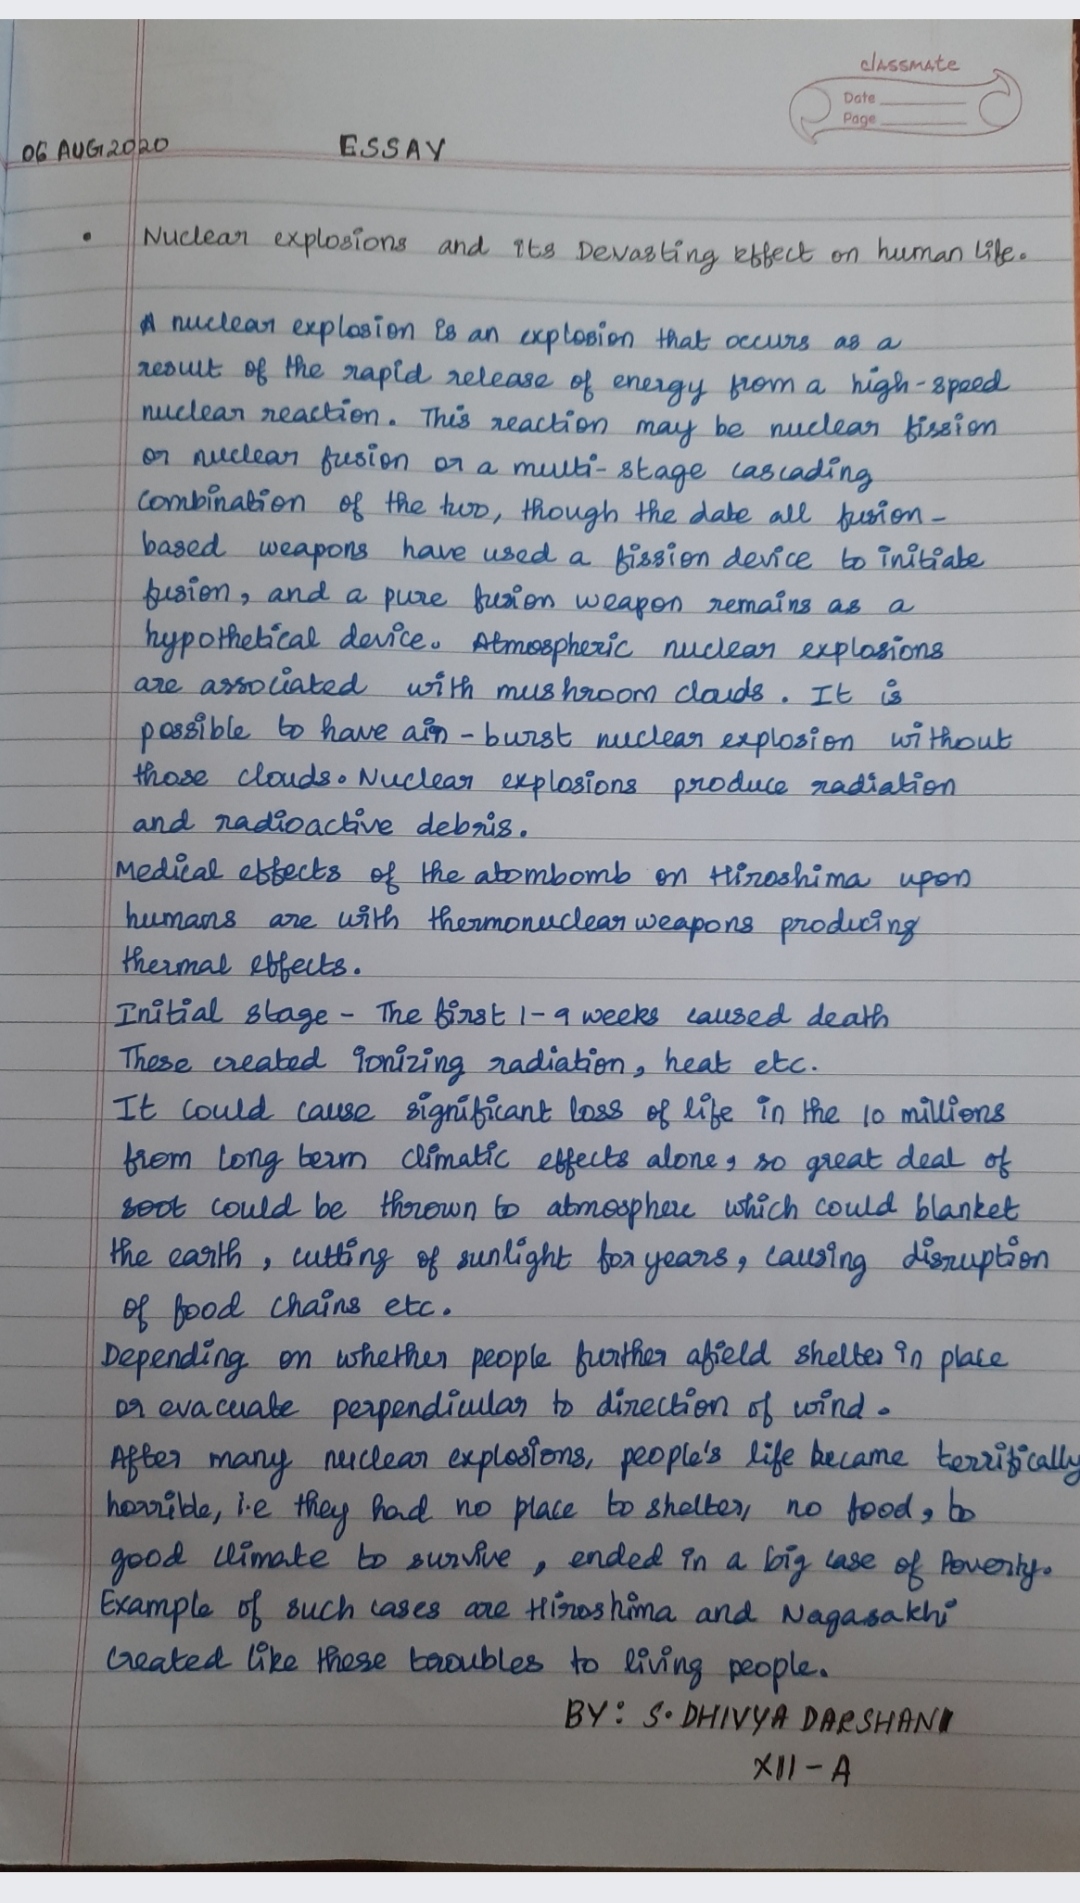 classmate
Date
Page
06 AUG 2020 ESSAY
• Nuclear explosions and its Devasting Effect on human life.
A nuclear explosion is an explosion that occurs as a
result of the rapid release of energy from a high-speed
nuclear reaction. This reaction may be nuclear fission
or nuclear fusion or a multi-stage cascading
combination of the two, though the date all fusion-
based weapons have used a fission device to initiate
fusion, and a pure fusion weapon remains as a
hypothetical device. Atmospheric nuclear explosions
are associated with mushroom clouds. It is
possible to have air-burst nuclear explosion without
those clouds. Nuclear explosions produce radiation
and radioactive debris.
Medical effects of the atombomb on Hiroshima upon
humans are with thermonuclear weapons producing
thermal effects.
Initial stage - The first 1-9 weeks caused death
These created ionizing radiation, heat etc.
It could cause significant loss of life in the 10 millions
from long term climatic effects alone, so great deal of
soot could be thrown to atmosphere which could blanket
the earth, cutting of sunlight for years, causing disruption
of food chains etc.
Depending on whether people further afield shelter in place
or evacuate perpendicular to direction of wind.
After many nuclear explosions, people's life became terrifically
horrible, i.e they had no place to shelter, no food, to
good climate to survive, ended in a big case of Poverty.
Example of such cases are Hiroshima and Nagasakhi
Created like these troubles to living people.
BY: S. DHIVYA DARSHANI
XII - A